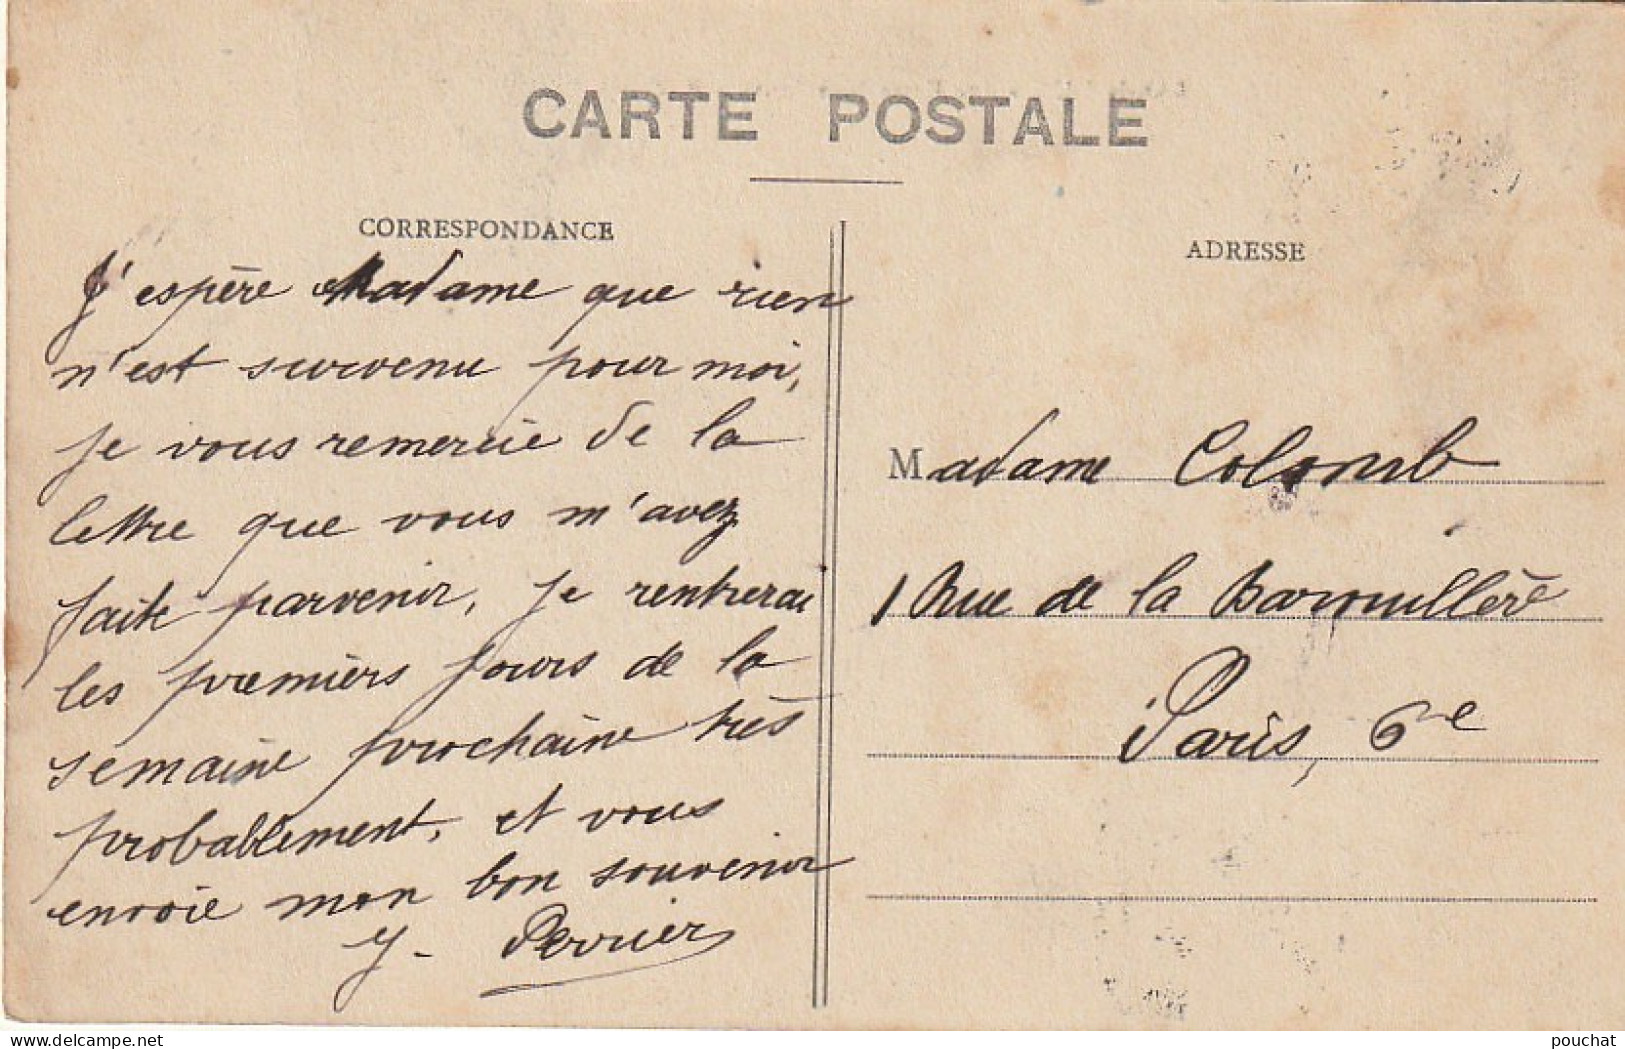 CARTE POSTALE
CORRESPONDANCE
J'espère Madame que rien
n'est survenu pour moi,
je vous remercie de la
lettre que vous m'avez
faite parvenir, je rentrerai
les premiers jours de la
semaine prochaine très
probablement, et vous
envoie mon bon souvenir
J. Perrier
ADRESSE
Madame Colomb
1 Rue de la Barouillère
Paris, 6e
delcampe.net
pouchat